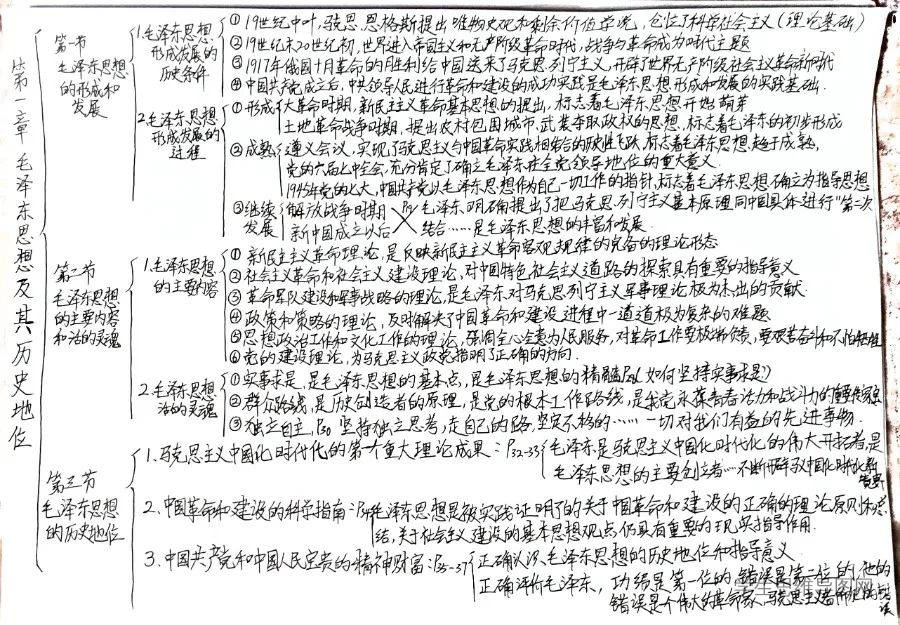 第一章 毛泽东思想及其历史地位
第一节
毛泽东思想
的形成和
发展
1.毛泽东思想
形成发展的
历史条件
①19世纪中叶,马克思、恩格斯提出唯物史观和剩余价值学说,创立了科学社会主义(理论基础)
②19世纪末20世纪初,世界进入帝国主义和无产阶级革命时代,战争与革命成为时代主题
③1917年俄国十月革命的胜利给中国送来了马克思列宁主义,开辟了世界无产阶级社会主义革命新时代
④中国共产党成立后,中共领导人民进行革命和建设的成功实践是毛泽东思想形成和发展的实践基础.
2.毛泽东思想
形成发展的
过程
①形成
大革命时期,新民主主义革命基本思想的提出,标志着毛泽东思想开始萌芽
土地革命战争时期,提出农村包围城市、武装夺取政权的思想,标志着毛泽东的初步形成
②成熟
遵义会议,实现了马克思主义与中国革命实践相结合的 标志毛泽东思想趋于成熟,
党的六届七中全会,充分肯定了确立毛泽东在全党领导地位的重大意义.
1945年党的七大,中国共产党以毛泽东思想作为自己一切工作的指针,标志着毛泽东思想确立为指导思想
③继续
发展
解放战争时期
新中国成立以后
毛泽东明确提出了把马克思列宁主义基本原理同中国具体进行"第二次
结合……是毛泽东思想的丰富和发展.
第二节
毛泽东思想
的主要内容
和活的灵魂
1.毛泽东思想
的主要内容
①新民主主义革命理论,是反映新民主主义革命客观规律的完备的理论形态
②社会主义革命和社会主义建设理论,对中国特色社会主义道路的探索具有重要的指导意义
③革命军队建设和军事战略的理论,是毛泽东对马克思列宁主义军事理论极为杰出的贡献
④政策和策略的理论,及时解决了中国革命和建设进程中一道道极为复杂的难题
⑤思想政治工作和文化工作的理论,强调全心全意为人民服务,对革命工作要极端负责,要艰苦奋斗和不怕牺牲
⑥党的建设理论,为马克思主义政党指明了正确的方向.
2.毛泽东思想
活的灵魂
①实事求是,是毛泽东思想的基本点,是毛泽东思想的精髓(如何坚持实事求是?)
②群众路线,是历史创造者的原理,是党的根本工作路线,是我党永葆青春活力和战斗力的重要传家宝
③独立自主,P30 坚持独立思考,走自己的路,坚定不移的……一切对我们有益的先进事物.
第三节
毛泽东思想
的历史地位
1.马克思主义中国化时代化的第一个重大理论成果:P32-33
毛泽东是马克思主义中国化时代化的伟大开拓者,是
毛泽东思想的主要创立者…不断开辟马 中国化时代化新
2.中国革命和建设的科学指南:
毛泽东思想是被实践证明了的关于中国革命和建设的正确的理论原则和经验总
结,关于社会主义建设的基本思想观点仍具有重要的现实指导作用.
3.中国共产党和中国人民宝贵的精神财富:P35-37
正确认识毛泽东思想的历史地位和指导意义.
正确评价毛泽东,功绩是第一位的,错误是第二位的,他的
错误是个伟大的革命家、马克思主义者所犯的错误